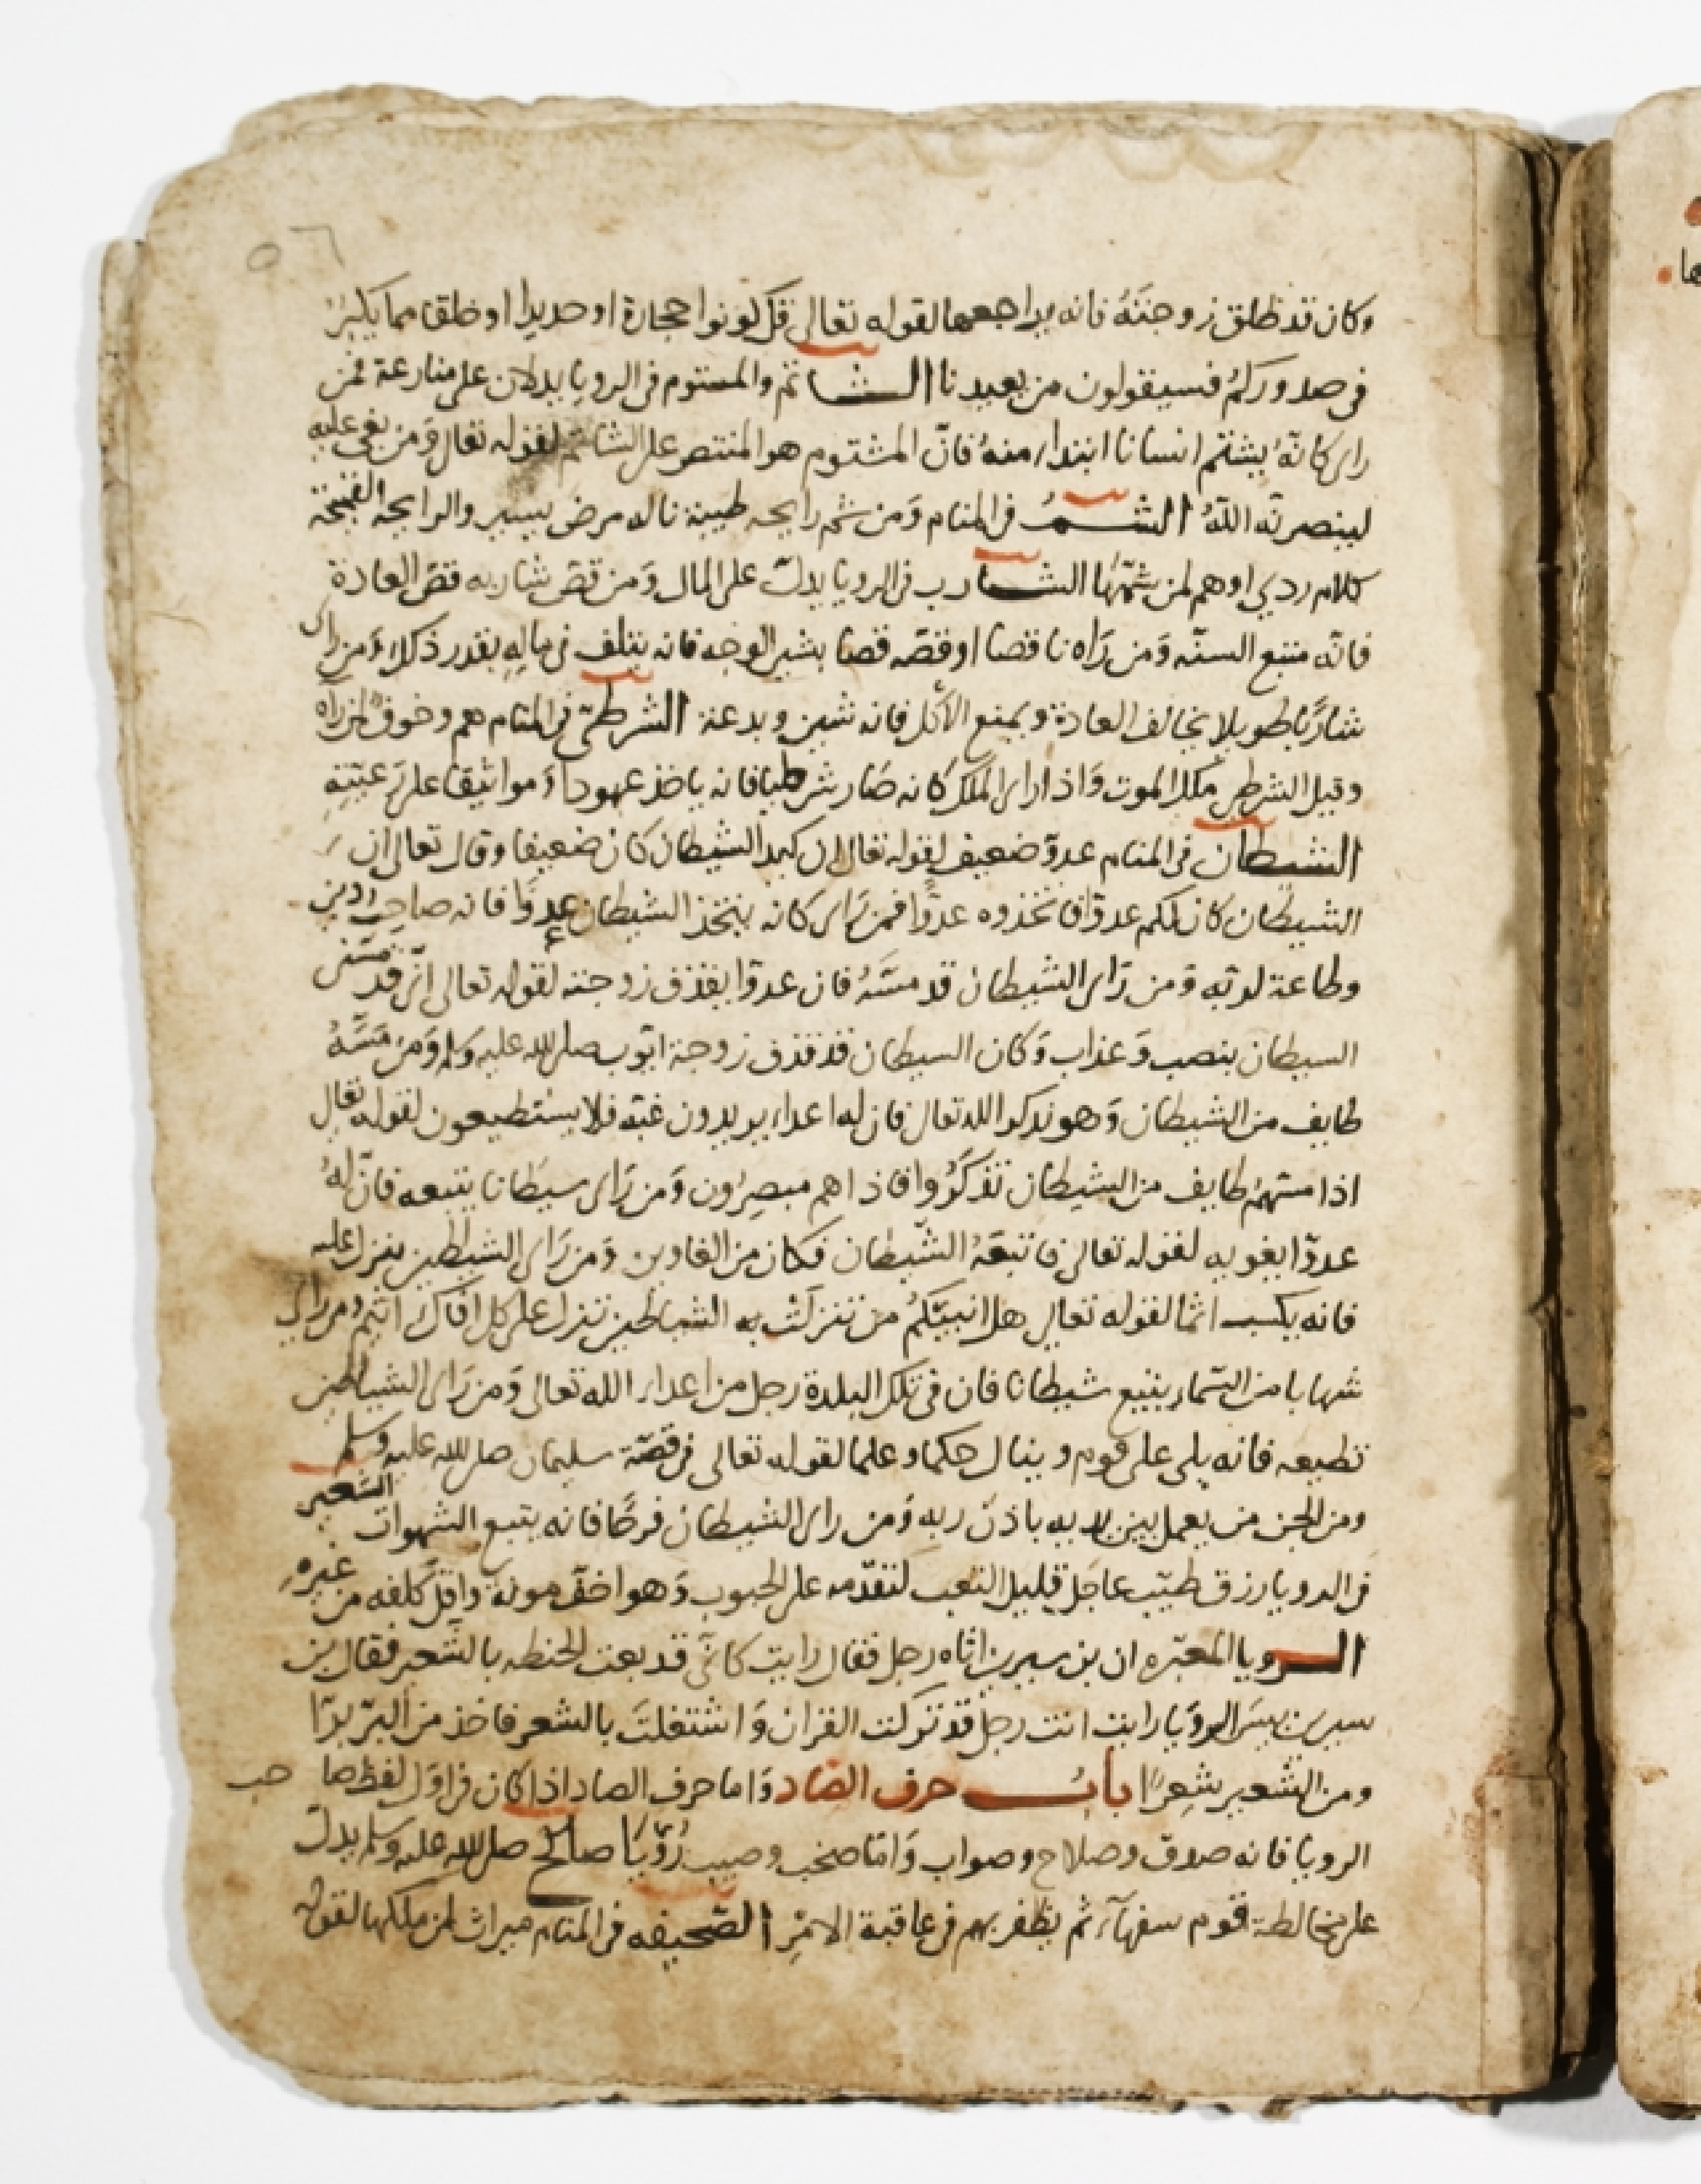 ٥٦
وكان قد طلق زوجته فانه يراجعها لقوله تعالى قل كونوا حجارة او حديدا او خلقا مما يكبر
فى صدوركم فسيقولون من يعيدنا الشاتم والمشتوم فى الرويا يدلان على منازعة فمن
راى كانّه يشتم انسانا ابتداء منهُ فانّ المشتوم هو المنتصر على الشاتم لقوله تعالى وَمن بغى عليه
لينصرنّه اللّهُ الشم فى المنام وَمن شم رايحه طيبة ناله مرض يسير والرايحه القبيحة
كلام ردي او هم لمن شمّها الشارب فى الرويا يدلّ على المال وَمن قصّ شاربه قصّ العادة
فانّه متبع السنّه وَمن رَاه ناقصا او قصّه قصا يشين الوجه فانه يتلف فى ماله بقدر ذكك وَمن راى
شاربًا طويلا يخالف العادة ويمنع الأكل فانه شين وبدعة الشرطىّ فى المنام هم وخوف لمن راه
وقيل الشرطى ملك الموت وَاذا راى الملك كانه صَار شرطيا فانه ياخذ عهودا وَمواثيقا على رَعيّته
الشيطان فى المنام عدوّ ضعيف لقوله تعالى ان كيد الشيطان كان ضعيفا وقال تعالى ان
الشيطان كان لكم عدوّا فاتخذوه عدوًّا فمن رَاى كانه يتخذ الشيطان عدوًّا فانه صاحب دين
وطاعة لربّه وَمن رَاى الشيطان قد مسّهُ فان عدوّا يقذف زوجته لقوله تعالى انّى قد مسّنى
السيطان بنصب وَعذاب وَكان السيطان قد قذف زوجة ايّوب صلى الله عليه وسلم وَمن مَسَّهُ
طايف من الشيطان وَهو يذكر الله تعالى فان له اعداء يريدون غبّه فلا يستطيعون لقوله تعالى
اذا مسّهمُ طايف من الشيطان تذكّرُوا فاذا هم مبصِرُون وَمن رَاى سيطانا يتبعه فانّ لهُ
عدوّا يغويه لقوله تعالى فاتبعَهُ الشّيطان فكان من الغاوين وَمن رَاى الشياطين تنزل عليه
فانه يكسب اثما لقوله تعالى هل انبيّكمُ من تنزلت به الشياطين تنزل على كل افّاك اثيم ومن راى
شهابا من السّماء يتبع شيطانا فان فى تلك البلدة رجل من اعداء الله تعالى وَمن رَاى الشياطين
تطيعه فانه يلى على قوم وينال حكما وعلما لقوله تعالى فى قصّة سليمان صلى الله عليه وسلم
ومن الجن من يعمل بين يديه باذن ربه وَمن راى الشيطان فرحًا فانه يتبع الشهوات الشعير
فى الرويا رزق طيّب عاجل قليل التعب لتقدّمه على الحبوب وَهو اخفّ مونة وَاقل كلفه من غيره
الرويا المعبّره ان بن سيرين اتاه رجل فقال رايت كانّى قد بعت الحنطه بالشعير فقال بن
سيرين بيس الرؤيا رايت انت رجل قد تركت القران وَاشتغلت بالشعر فاخذ من البرّ برّا
ومن الشعير شِعرًا بابُ حرف الصّاد وَاما حرف الصاد اذا كان فى اوّل لفظها
الرويا فانه صدق وصلاح وصواب وَامّا صخب وصيب رُؤيَا صالح صلى الله عليه وسلم يدلّ
على مخالطة قوم سفهآء ثم يظفر بهم فى عاقبة الامْرِ الصّحيفه فى المنام ميراث لمن ملكها لقوله